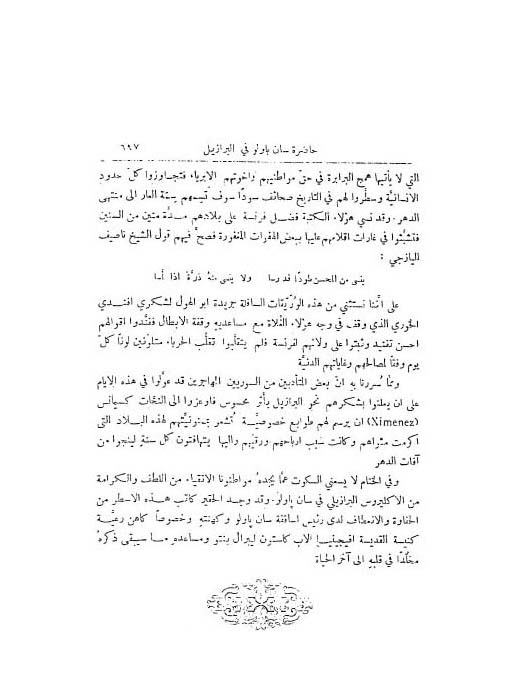 حاضرة سان باولو في البرازيل ٦٩٧
التي لا يأتيها همج البرابرة في حق مواطنيهم واخوتهم الابرياء فتجاوزوا كل حدود
الانسانيَّة وسطَّروا لهم في التاريخ صحائف سودًا سوف تَسِمهم بسِمَة العار الى منتهى
الدهر. وقد نسي هؤلاء الكتبة فضل فرنسة على بلادهم مدَّة مئتين من السنين
فتشبَّثوا في غارات اقلامهم عليها ببعض الهفوات المغفورة فصحَّ فيهم قول الشيخ ناصيف
اليازجي :
ينسى من المحسن طودًا قد رسا ولا ينسى منهُ ذرَّةً اذا أسا
على انَّنا نستثني من هذه الوُرَيقات السافلة جريدة ابو الهول لشكري افندي
الخوري الذي وقف في وجه هؤلاء الغُلاة مع مساعديهِ وقفة الأبطال ففنَّدوا اقوالهم
احسن تفنيد وثبتوا على ولائهم لفرنسة فلم يتقلَّبوا تقلُّب الحرباء متلوّنين لونًا كلّ
يوم وفقًا لمصالحهم وغاياتهم الدنيَّة
وممَّا سُررنا بهِ انَّ بعض المتأدبين من السوريين المهاجرين قد عوَّلوا في هذه الايام
على ان يعلنوا بشكرهم نحو البرازيل بأثر محسوس فاوعزوا الى النحَّات كسيمانس
(Ximenez) ان يرسم لهم طوابع خصوصيَّة تُشعر بممنونيَّتهم لهذه البلاد التي
اكرمت مثواهم وكانت سبب ارباحهم ورقيّهم واليها يتهافتون كل سنةٍ لينجوا من
آفات الدهر
وفي الختام لا يسعني السكوت عمَّا يجدهُ مواطنونا الاتقياء من اللطف والكرامة
من الاكليروس البرازيلي في سان باولو. وقد وجد الحقير كاتب هذه الاسطر من
الحفاوة والانعطاف لدى رئيس اساقفة سان باولو وكهنتهِ وخصوصًا كاهن رعيَّة
كنيسة القديسة افيجينيا الاب كاستون ليبرال بنتو ومساعدهِ ما سيبقى ذكرهُ
مخلَّدًا في قلبهِ الى آخر الحياة